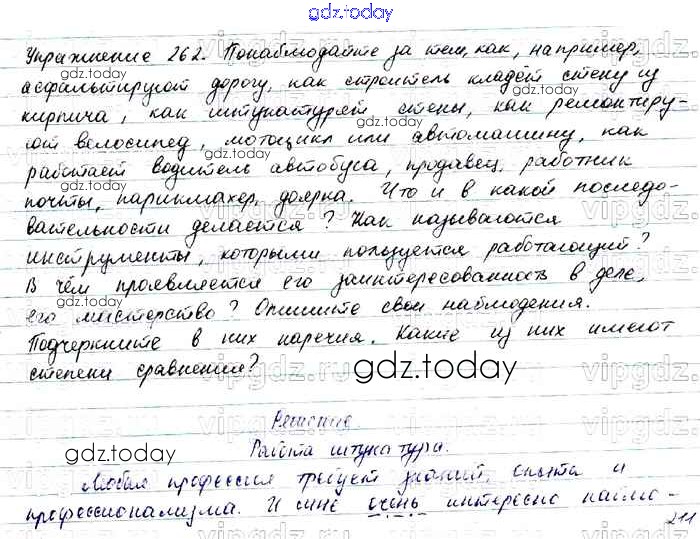 gdz.today
Упражнение 262. Понаблюдайте за тем, как, например,
асфальтируют дорогу, как строитель кладёт стену из
кирпича, как штукатурят стены, как ремонтиру-
ют велосипед, мотоцикл или автомашину, как
работает водитель автобуса, продавец, работник
почты, парикмахер, доярка. Что и в какой последо-
вательности делается? Как называются
инструменты, которыми пользуется работающий?
В чём проявляется его заинтересованность в деле,
его мастерство? Опишите свои наблюдения.
Подчеркните в них наречия. Какие из них имеют
степени сравнения?
gdz.today
Решение
gdz.today
Работа штукатура.
Любая профессия требует знаний, опыта и
профессионализма. И мне очень интересно наблю-
211